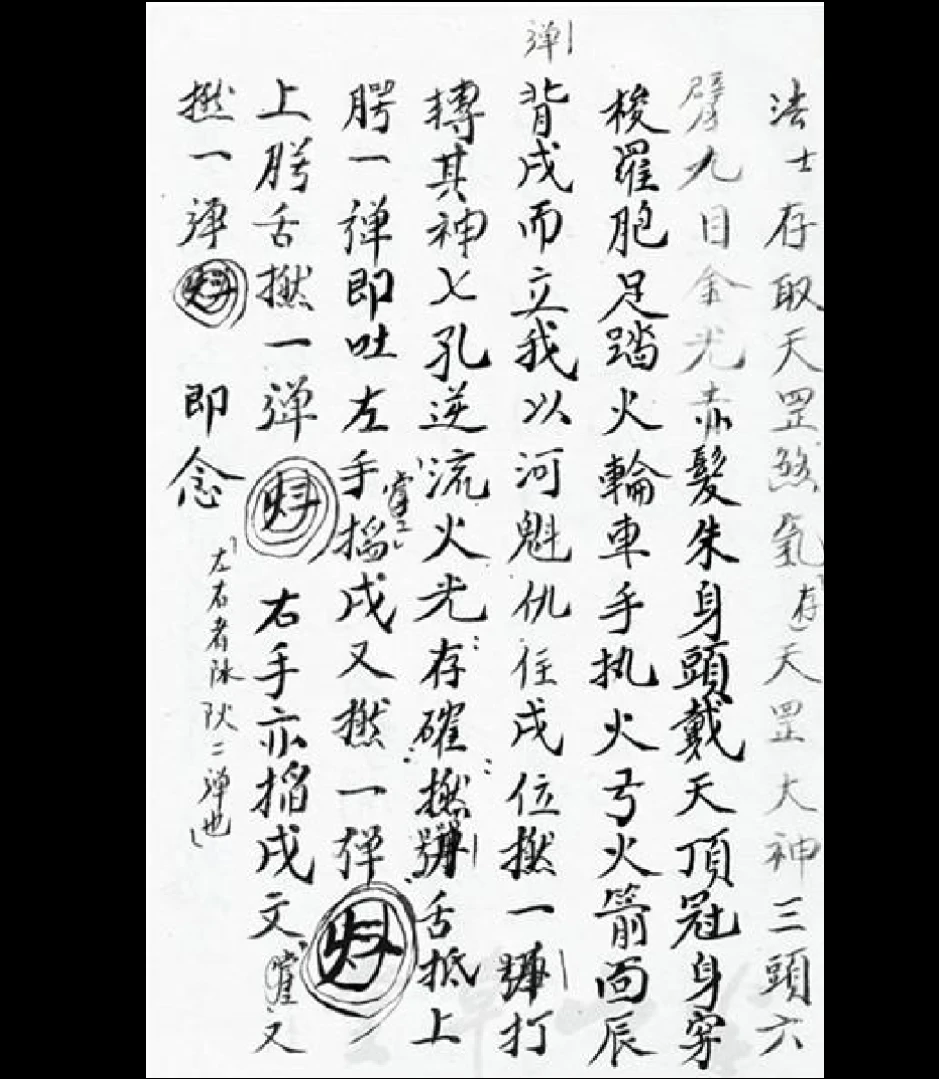 法士存取天罡煞氣存天罡大神三頭六
臂九目金光赤髮朱身頭戴天頂冠身穿
梭羅胞足踏火輪車手执火弓火箭面辰
弹
背戌而立我以河魁仇住戌位撚一弹打
轉其神七孔逆流火光存確撚 舌抵上
腭一弹即吐左手搯戌又撚一弹
上腭舌撚一弹 右手亦搯戌文 又
撚一弹 即念
左右者 二弹也